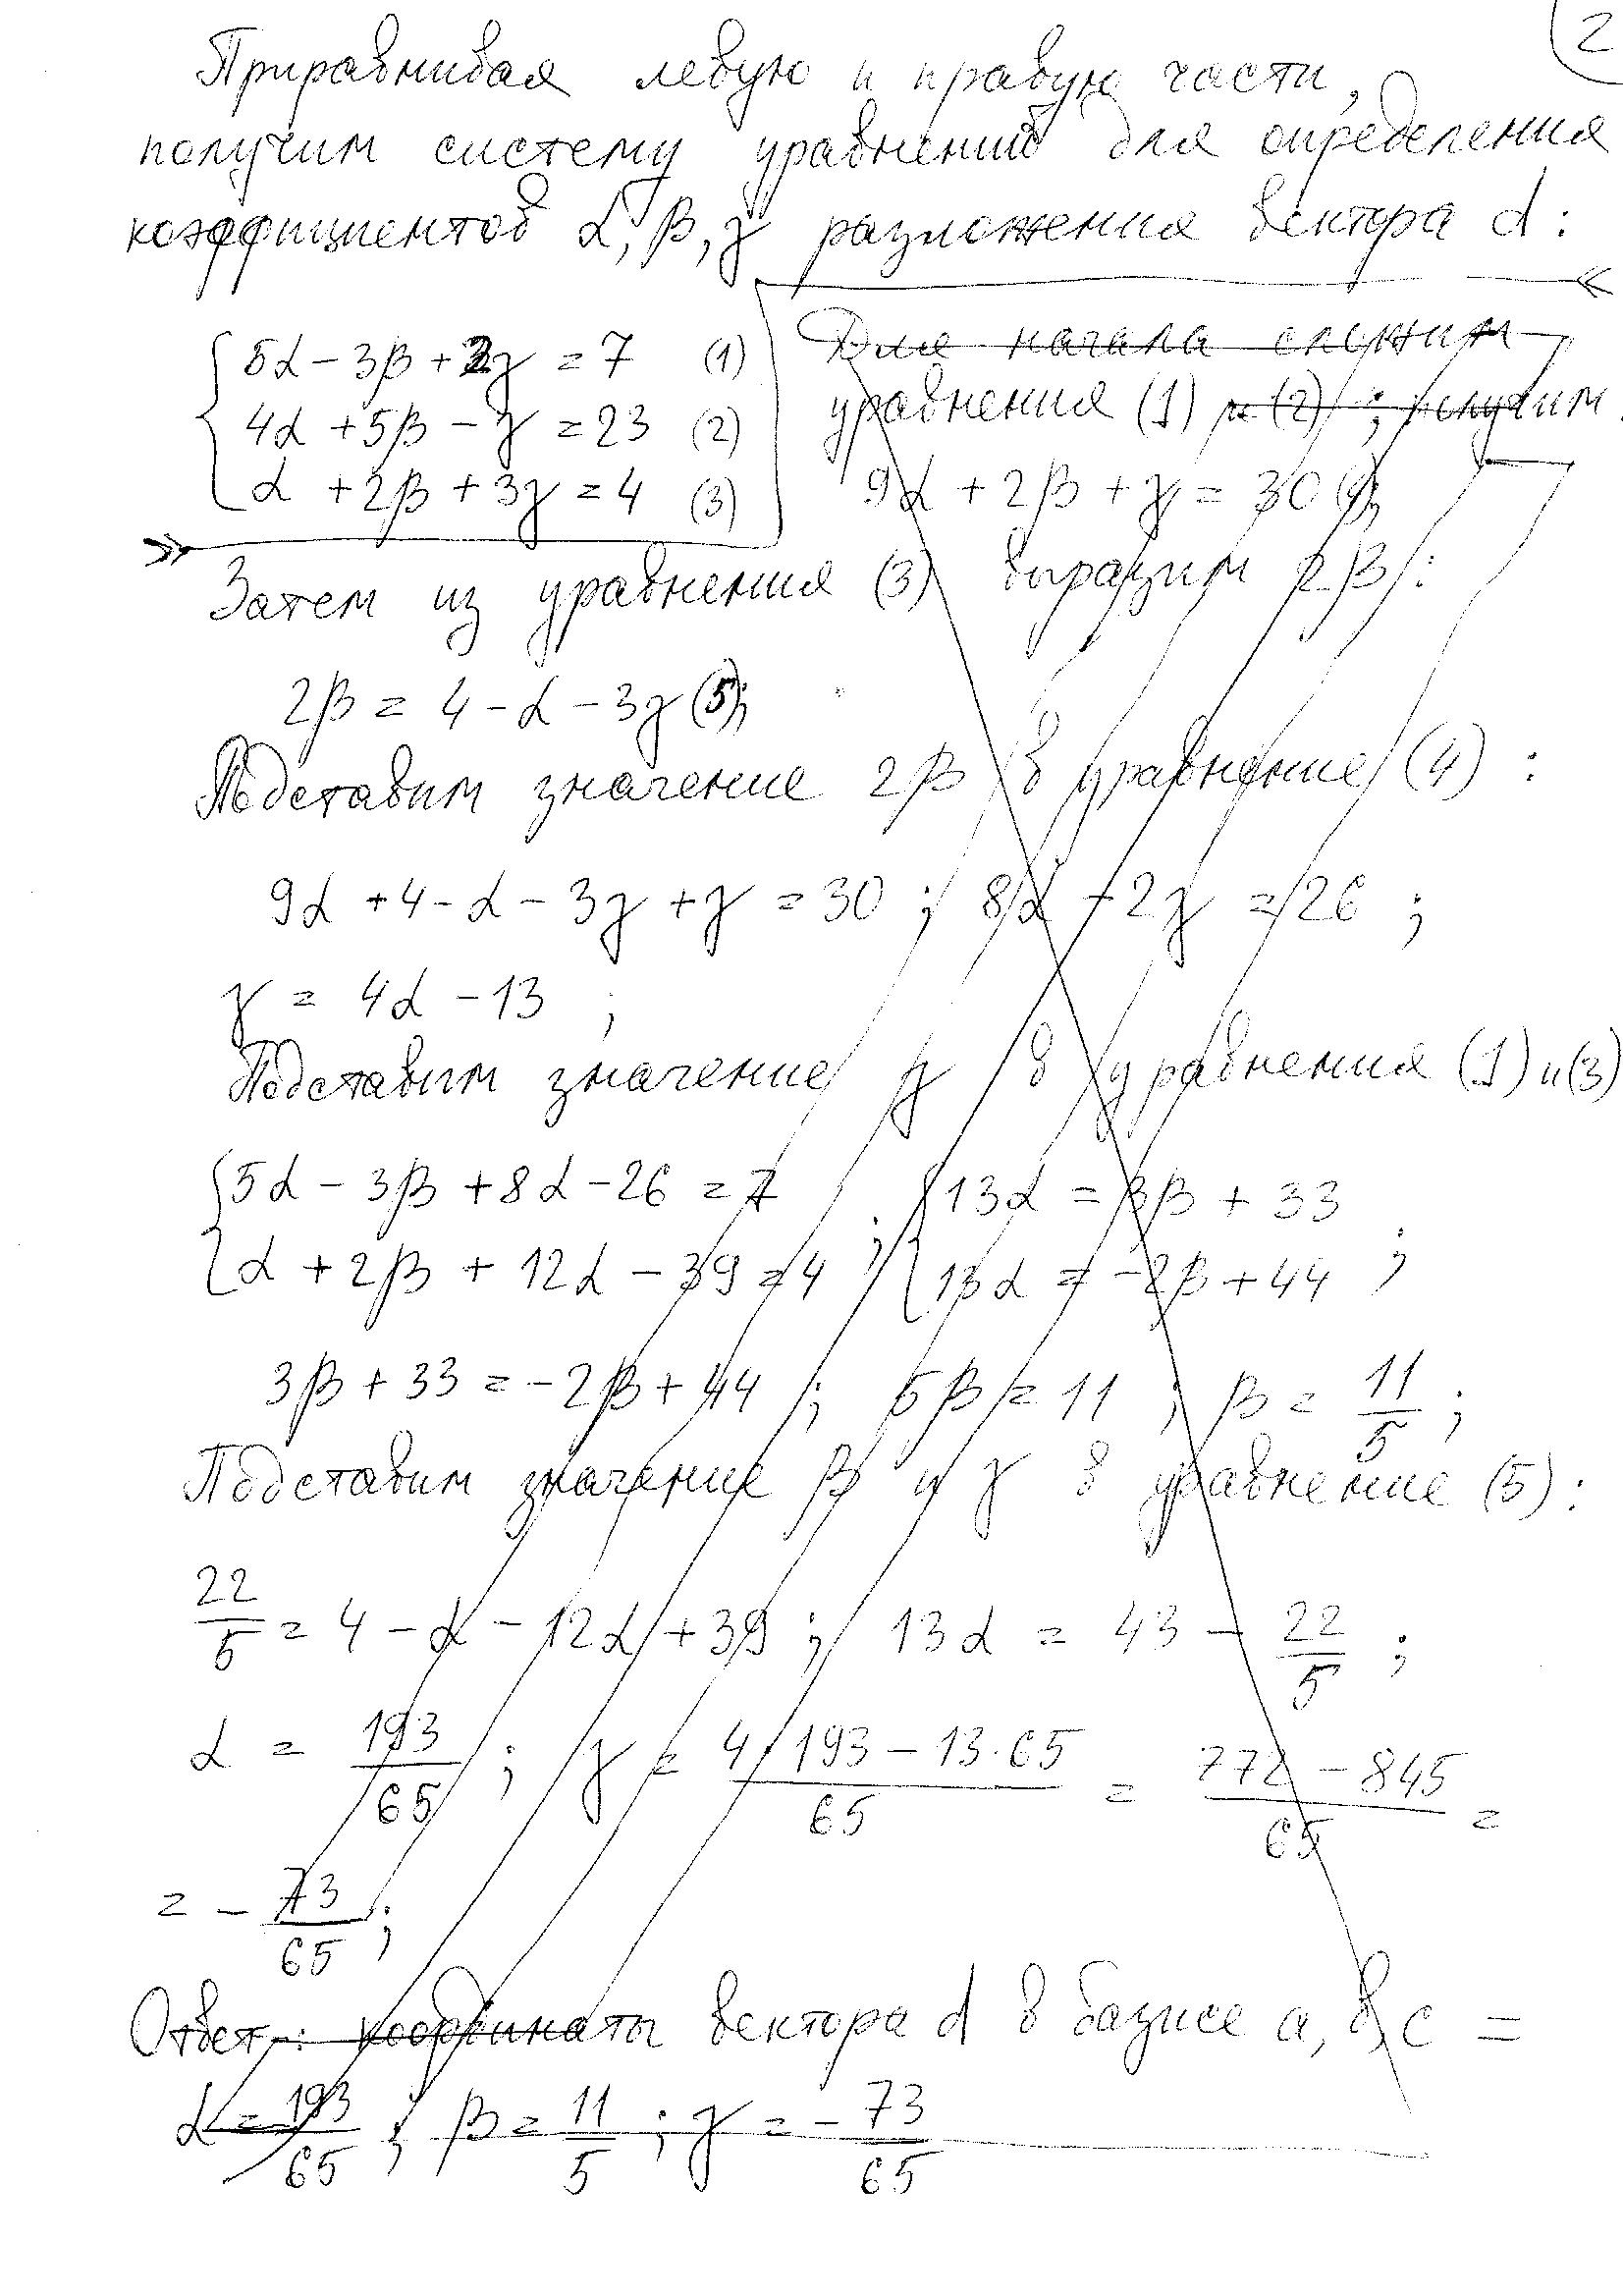 2
Приравнивая левую и правую части,
получим систему уравнений для определения
коэффициентов α, β, γ разложения вектора d:
5α - 3β + 2γ = 7 (1)
4α + 5β - γ = 23 (2)
α + 2β + 3γ = 4 (3)
Для начала сложим
уравнения (1) и (2) ; получим
9α + 2β + γ = 30 (4);
Затем из уравнения (3) выразим 2β:
2β = 4 - α - 3γ (5);
Подставим значение 2β в уравнение (4) :
9α + 4 - α - 3γ + γ = 30 ; 8α - 2γ = 26 ;
γ = 4α - 13 ;
Подставим значение γ в уравнения (1) и (3)
5α - 3β + 8α - 26 = 7 ; 13α = 3β + 33
α + 2β + 12α - 39 = 4 13α = -2β + 44 ;
3β + 33 = -2β + 44 ; 5β = 11 ; β = 11/5 ;
Подставим значение β и γ в уравнение (5) :
22/5 = 4 - α - 12α + 39 ; 13α = 43 - 22/5 ;
α = 193/65 ; γ = 4·193 - 13·65/65 = 772 - 845/65 =
= - 73/65 ;
Ответ: координаты вектора d в базисе a, b, c =
α = 193/65 ; β = 11/5 ; γ = - 73/65